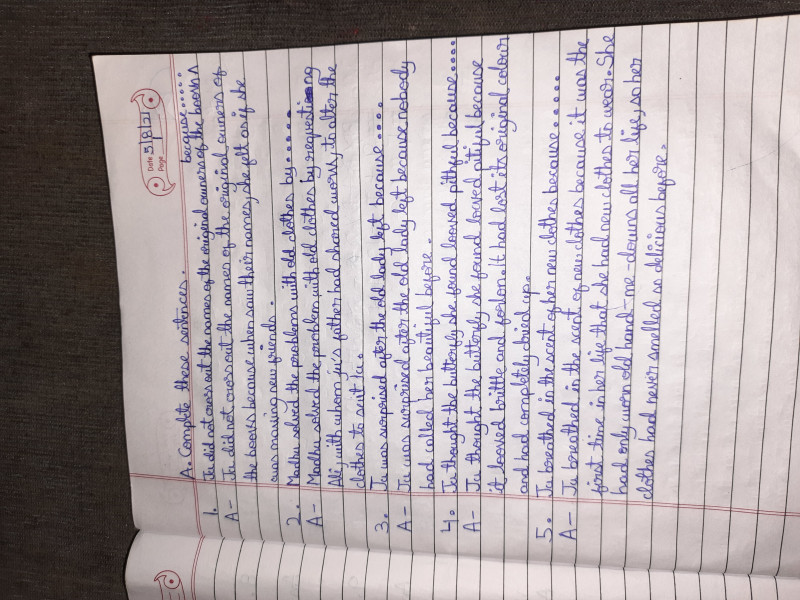 Date 5/8/21
Page
A. Complete these sentences.
because.....
1. Ju did not cross out the names of the original owners of the books
A- Ju did not cross out the names of the original owners of
the books because when saw their names, she felt as if she
was making new friends.
2. Madhu solved the problems with old clothes by......
A- Madhu solved the problem with old clothes by requesting
Ali, with whom Ju's father had shared worst, to alter the
clothes to suit Ju.
3. Ju was surprised after the old lady left because....
A- Ju was surprised after the old lady left because nobody
had called her beautiful before.
4. Ju thought the butterfly she found looked pitiful because....
A- Ju thought the butterfly she found looked pitiful because
it looked brittle and forlon. It had lost its original colour
and had completely dried up.
5. Ju breathed in the scent of her new clothes because......
A- Ju breathed in the scent of new clothes because it was the
first time in her life that she had new clothes to wear. She
had only worn old hand-me-downs all her life, so her
clothes had never smelled so delicious before.